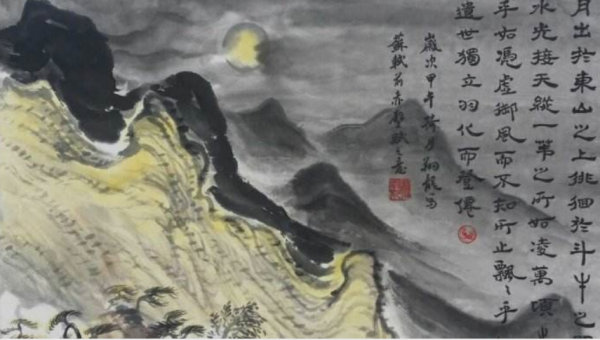 月出於東山之上徘徊於斗牛之
水光接天縱一葦之所如凌萬頃
乎如憑虛御風而不知所止飄〻乎
遺世獨立羽化而登僊
歲次甲午月翔龍寫
蘇軾前赤壁賦之意